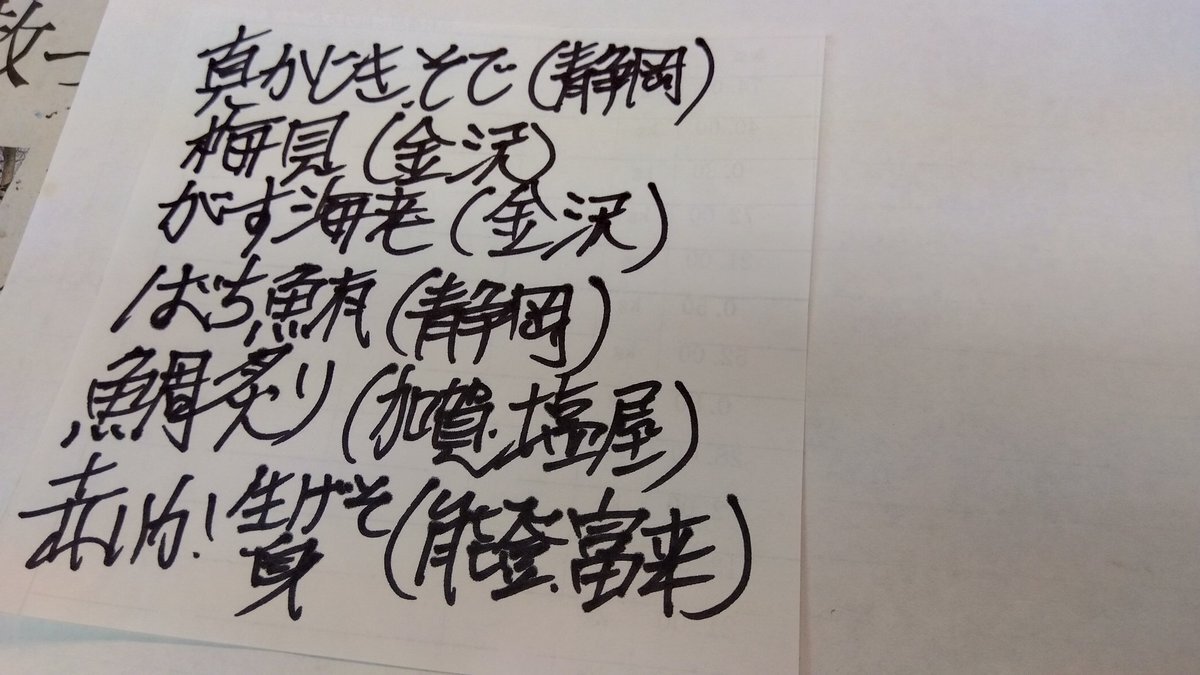 真かじき.そで(静岡)
梅貝(金沢)
がす海老(金沢)
ばち鮪(静岡)
鯛炙り(加賀.塩屋)
赤いか!生げそ身(能登.富来)